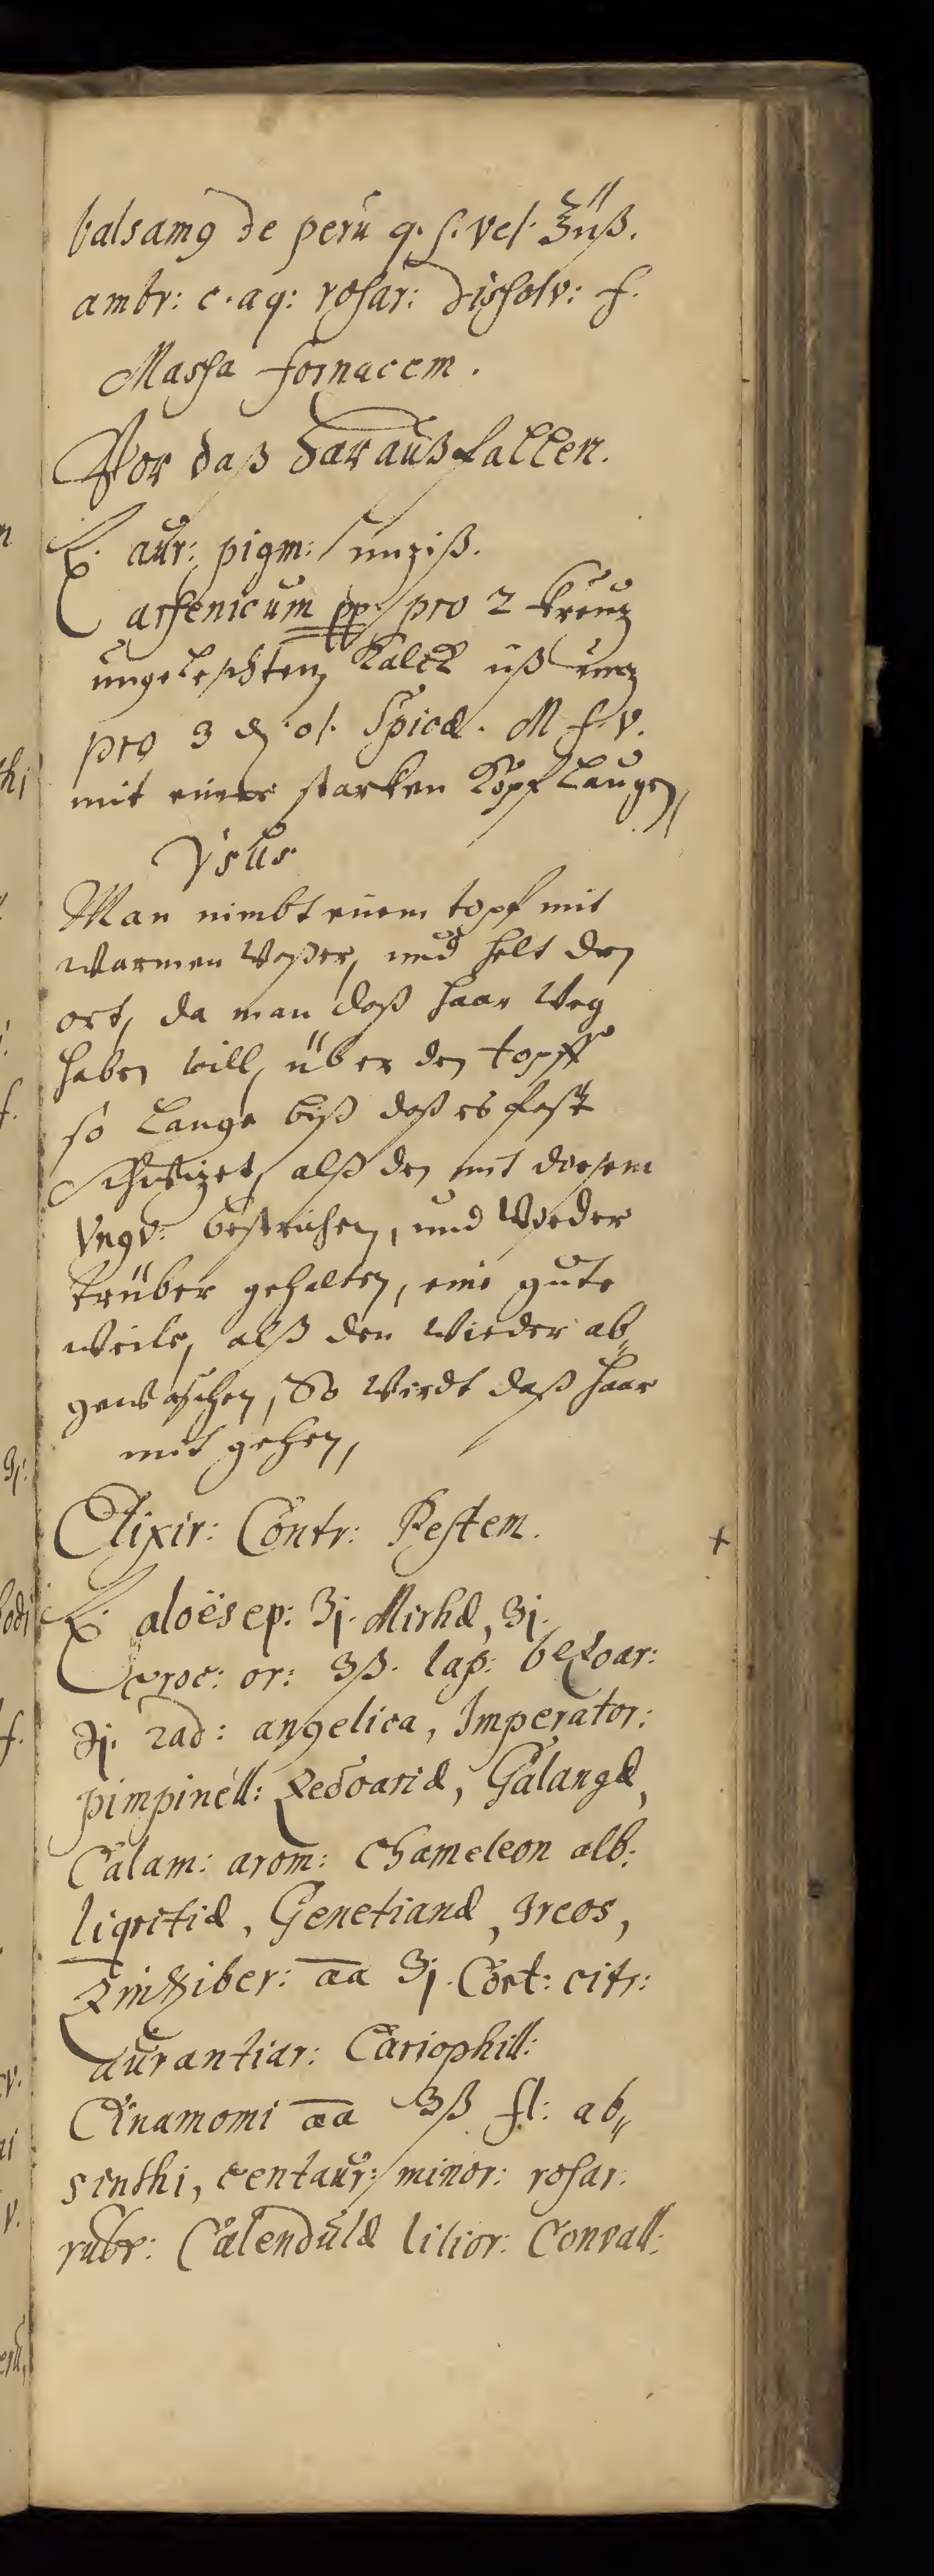 balsamꝯ de perú q. s. vel. ʒiiß.
ambr: c. aq: rosar: dissolv: f.
Massa fornacem.
Vor daß Harauß fallen.
℞. aúr: pigm: únziß.
arsenicúm pp. pro 2 kreúz
úngeleschten Kalck
pro 3 ₰. ol. Spicæ. M. f. v.
mit einer starken Kopf Laúgen,
Vsús
Man nimbt einem topf mit
warmen Waßer, únd helt den
ort, da man daß haar Weg
haben will, über den topff
so Lange biß daß es fast
schwizet, alß den mit diesem
Vngv: bestrichen, únd Wieder
trüber gehalten, eine gúte
weile, alß den Wieder ab„
gewaschen, So Wirdt daß haar
mit gehen,
Elixir: Contr: Pestem. +
℞. aloës ep: ʒj. Mirhæ, ʒj.
Croc: or: ʒß. lap: bezoar:
ℨj. rad: angelica, Imperator:
pimpinéll: Zedoariæ, Galangæ,
Calam: arom: Chameleon alb:
liqritiæ, Genetianæ, Ireos,
Zinziber: aa ʒj. Cort: citr:
aúrantiar: Cariophill:
Cinamomi aa ʒß fl: ab„
sinthi, centaúr: minor: rosar:
rúbr: Calendúlæ lilior: Convall: